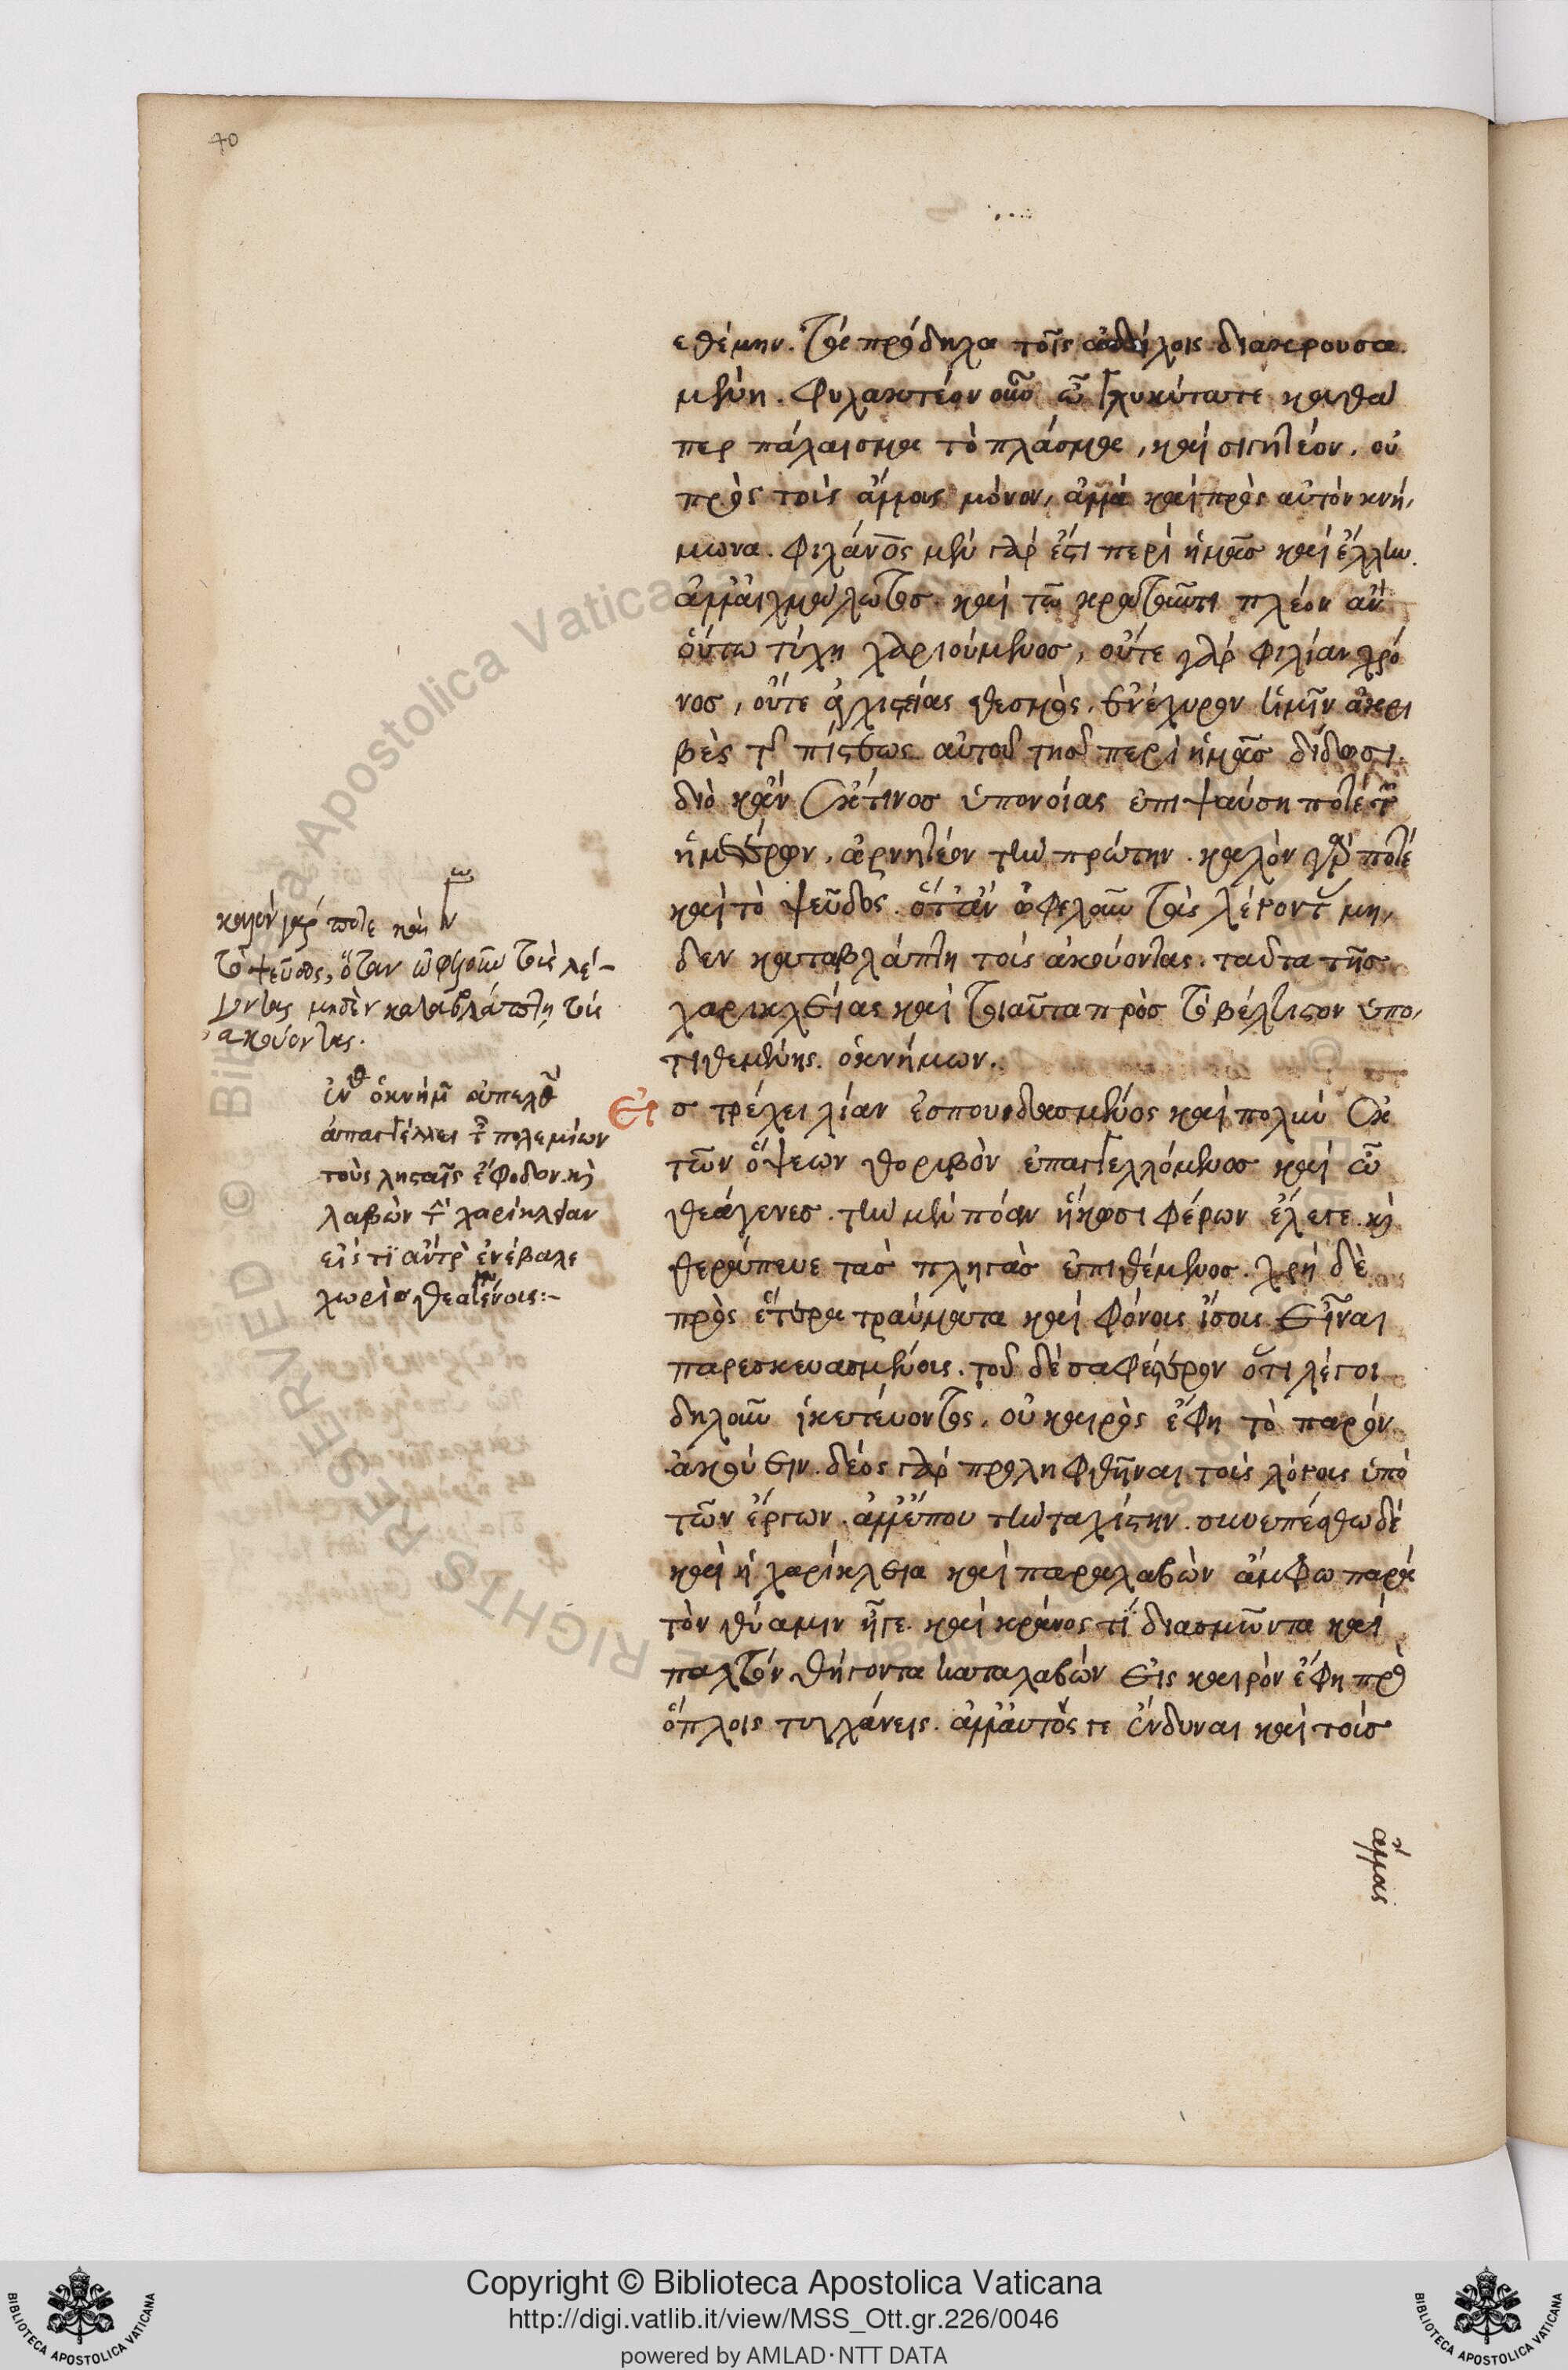 40
εθέμην. τὰ πρόδηλα τοῖς αδήλοις διακρουσα
μένη. Φυλακτέον οὖν ὦ γλυκύτατε καθά
περ πάλαισμα τὸ πλάσμα, καὶ σιγητέον. οὐ
πρὸς τοὺς ἄλλους μόνον, ἀλλὰ καὶ πρὸς αὐτὸν κνή,
μωνα. φιλάνος μὲν γάρ ἐστι περὶ ἡμᾶς καὶ ἕλλην.
ἀλλ' αἰχμάλωτος. καὶ τῶ κρατοῦντι πλέον ἂν
οὕτω τύχη χαριούμενος, οὔτε γὰρ φιλίαν χρό
νος, οὔτε ἀγχιστείας θεσμὸς. ἐνέχυρον ἡμῖν ἀκρι
βὲς τῆς πίστεως αὐτοῦ τῆς περὶ ἡμᾶς δίδωσι.
διὸ κἂν ἔκτινος ὑπονοίας ἐπιψαύση ποτέ τῶν
ἡμετέρων, ἀρνητέον τὴν πρώτην. καλὸν γάρ ποτέ
καὶ τὸ ψεῦδος. ὅταν ὠφελοῦν τοὺς λέγοντας μη,
δὲν καταβλάπτη τοὺς ἀκούοντας. ταῦτα τῆς
χαρικλείας καὶ τοιαῦτα πρὸς τὸ βέλτιστον ὑπο,
τιθεμένης. ὁ κνήμων.
Εἰσ τρέχει λίαν ἐσπουδασμένος καὶ πολὺν ἐκ
τῶν ὄψεων θορυβὸν ἐπαγγελλόμενος καὶ ὦ
θεάγενες. τὴν μὲν πόαν ἥκωσι φέρων ἔλεγε. κὶ
θεράπευε τὰς πληγὰς ἐπιθέμενος. χρὴ δὲ
πρὸς ἕτερα τραύματα καὶ φόνους ἴσους εἶναι
παρεσκευασμένους. τοῦ δὲ σαφέστερον ὅτι λέγοι
δηλοῦν ἱκετεύοντος. οὐ καιρὸς ἔφη τὸ παρόν
ἀκούειν. δέος γὰρ προληφθῆναι τοὺς λόγους ὑπὸ
τῶν ἔργων. ἀλλ' ἕπου τὴν ταχίστην. συνεπέσθω δὲ
καὶ ἡ χαρίκλεια καὶ παραλαβὼν ἄμφω παρὰ
τὸν θύαμιν ἦγε. καὶ κράνος τὲ διασμῶντα καὶ
παλτὸν θήγοντα καταλαβὼν εἰς καιρὸν ἔφη πρὸ
ὅπλοις τυγχάνεις. ἀλλ' αὐτός τε ἔνδυναι καὶ τοὺς
ἄλλους
καλὸν γάρ ποτε καὶ
τὸ ψεῦδος, ὅταν ὠφελοῦν τοὺς λέ-
γοντας μηδὲν καταβλάπτη τοὺς
ἀκούοντας.
ὁ κνήμ ἀπελθ
ἀπαγγέλλει τ πολεμίων
τοὺς λησταῖς ἔφοδον. κὶ
λαβὼν τ χαρίκλειαν
εἰς τι ἄντρ ἐνέβαλε
χωρὶς θεαγένους:-